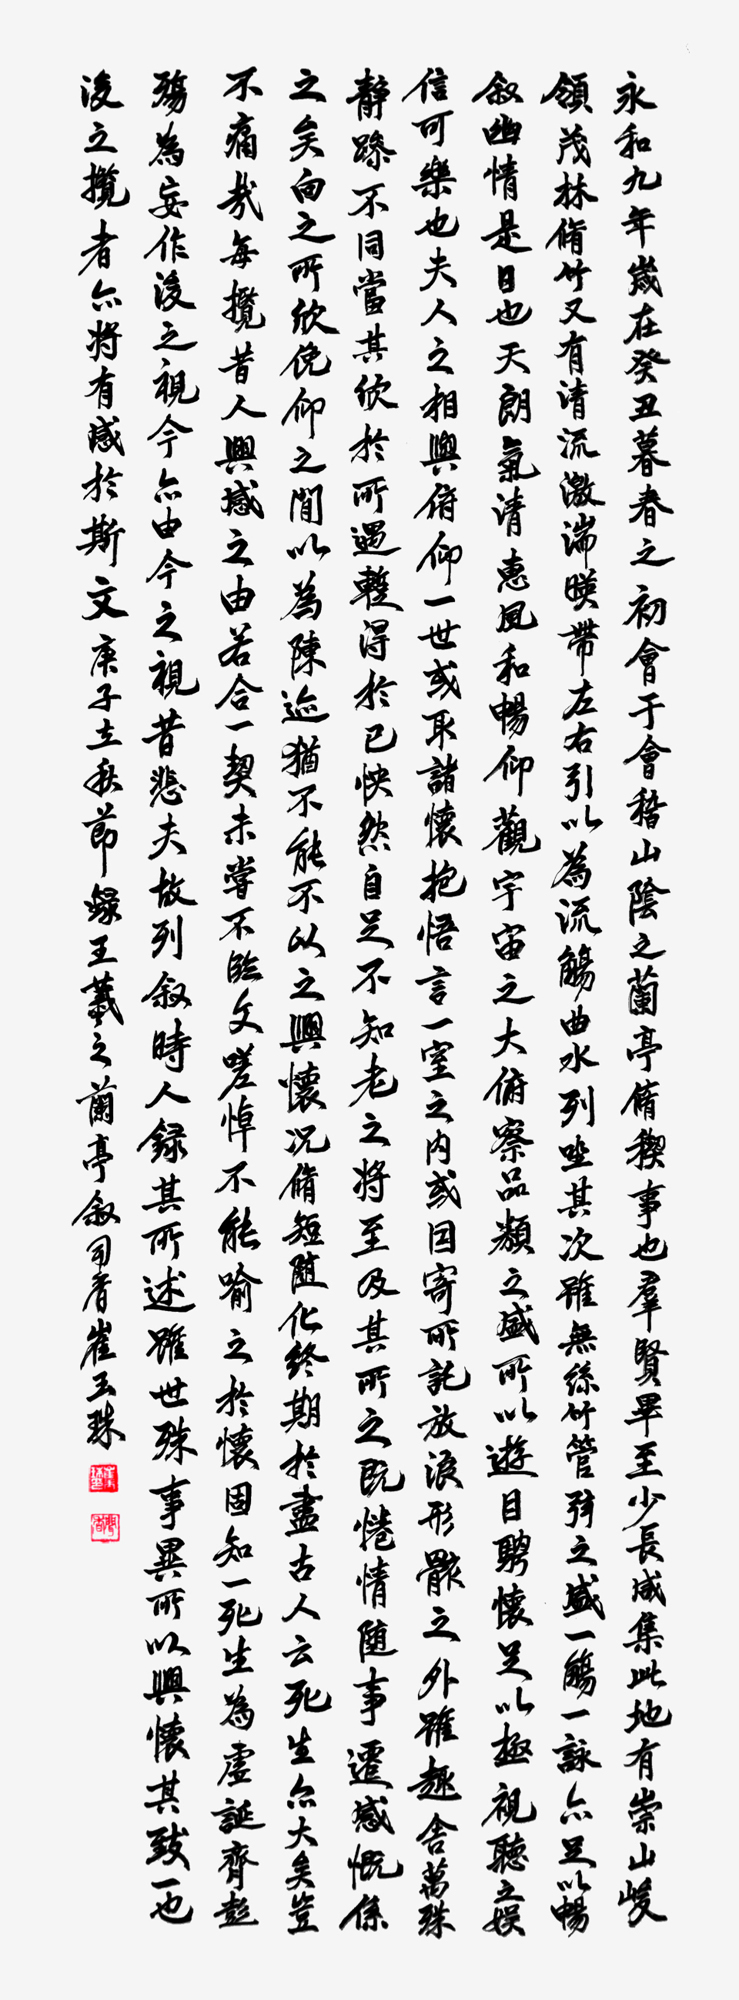 永和九年歲在癸丑暮春之初會于會稽山陰之蘭亭脩稧事也羣賢畢至少長咸集此地有崇山峻
領茂林脩竹又有清流激湍暎帶左右引以為流觴曲水列坐其次雖無絲竹管弦之盛一觴一詠亦足以暢
叙幽情是日也天朗氣清惠風和暢仰觀宇宙之大俯察品類之盛所以遊目騁懷足以極視聽之娛
信可樂也夫人之相與俯仰一世或取諸懷抱悟言一室之內或因寄所託放浪形骸之外雖趣舍萬殊
静躁不同當其欣於所遇蹔得於己怏然自足不知老之將至及其所之既惓情隨事遷感慨係
之矣向之所欣俛仰之閒以為陳迹猶不能不以之興懷况脩短隨化終期於盡古人云死生亦大矣豈
不痛哉每攬昔人興感之由若合一契未嘗不臨文嗟悼不能喻之於懷固知一死生為虛誕齊彭
殤為妄作後之視今亦由今之視昔悲夫故列叙時人錄其所述雖世殊事異所以興懷其致一也
後之攬者亦將有感於斯文庚子立秋節錄王羲之蘭亭叙司香崔玉珠